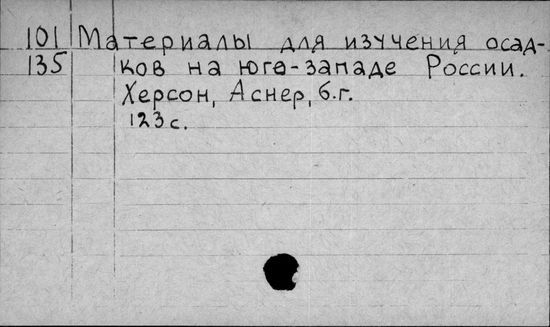 101 Материалы для изучения осад-
135 ков на юге-западе России.
Херсон, Аснер, б.г.
123 с.